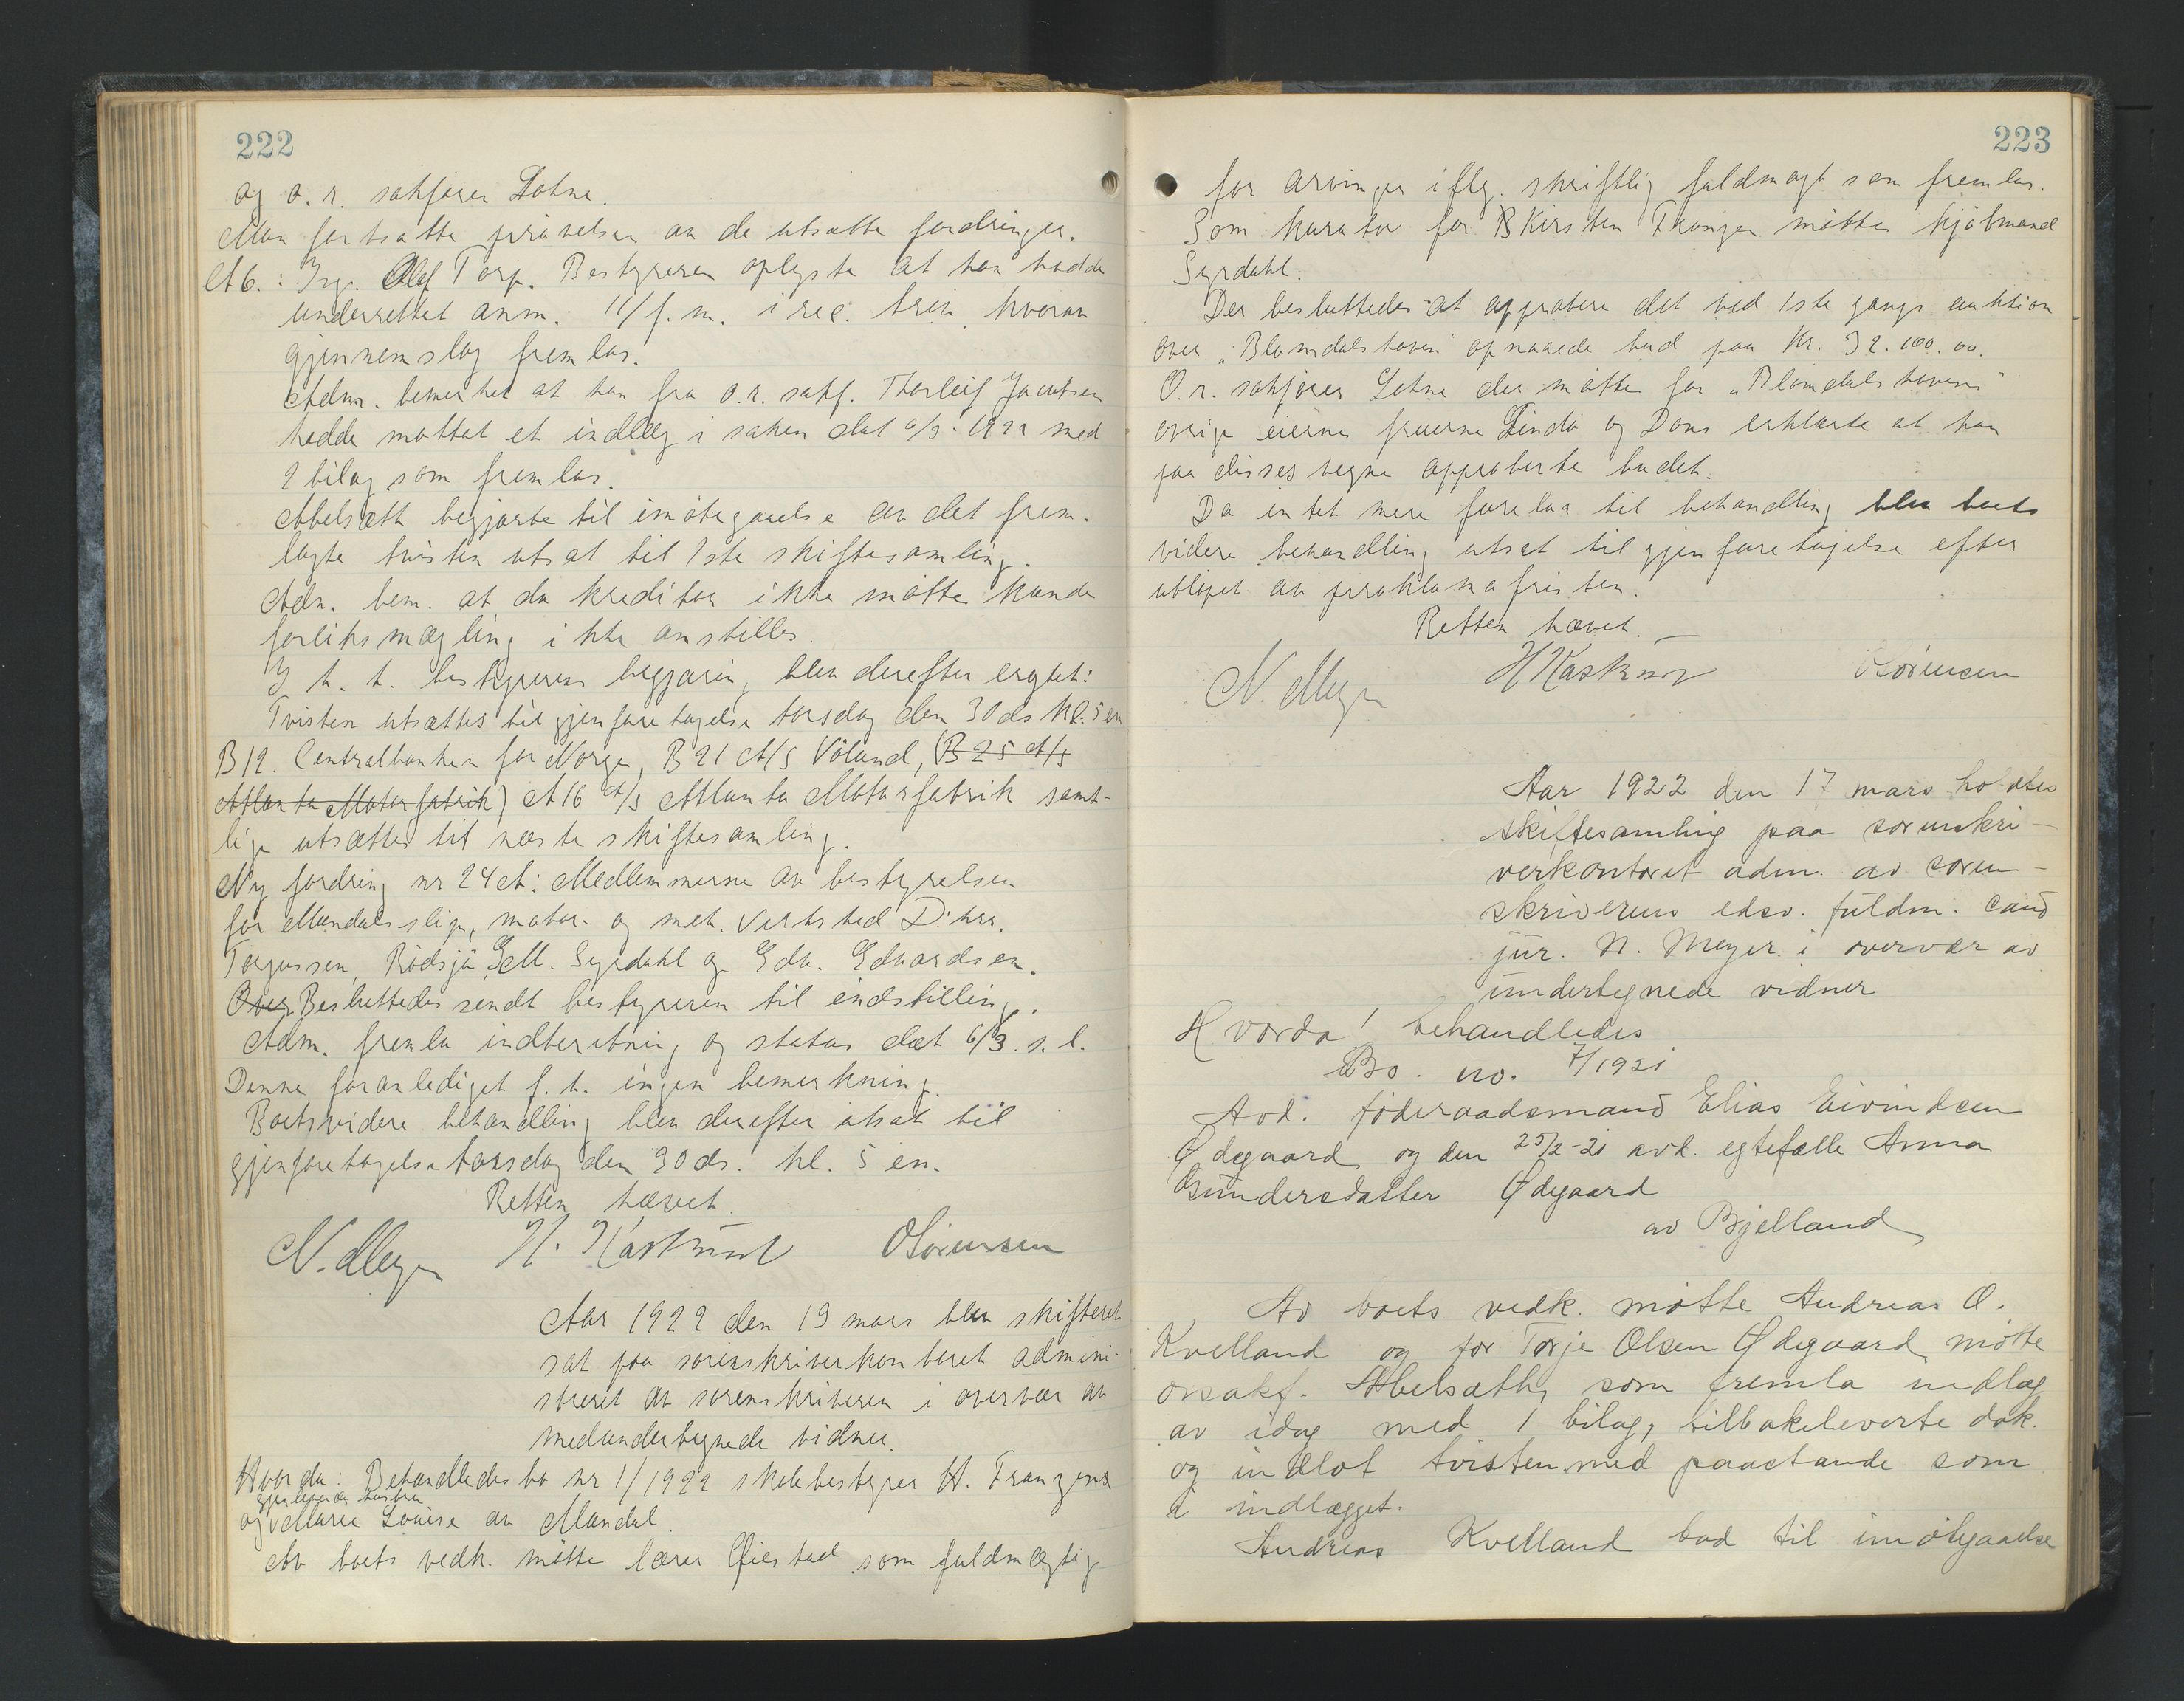 222
og o. r. sakfører Lohne.
Man fortsatte prøvelsen av de utsatte fordringer.
A 6.: Ing. Olaf Torp. Bestyreren oplyste at han hadde
underrettet anm. 11/ f. m. i rec. brev, hvorav
gjennemslag fremlas.
Adm. bemerket at han fra o. r. sakf. Thorleif Jacobsen
hadde mottat et indlæg i saken dat 6/3 1922 med
2 bilag som fremlas.
Abelsæth begjærte til imøtegaaelse av det frem-
lagte tvisten utsat til 1ste skiftesamling.
Adm. bem. at da kreditor ikke møtte kunde
forliksmægling ikke anstilles.
I h. t. bestyrerens begjæring blev derefter eragtet:
Tvisten utsættes til gjenforetagelse torsdag den 30 ds kl. 5 em
B 12. Centralbanken for Norge, B 21 A/S Vøland, (B 25 A/S
Atlanta Motorfabrik) A 16 A/S Atlanta Motorfabrik samt-
lige utsættes til næste skiftesamling.
Ny fordring nr 24 A: Medlemmerne av bestyrelsen
for Mandals slip, motor- og mek. Verksted D'hrr.
Torgussen, Rødsjø, G.M. Syrdahl og Edv. Edvardsen.
Over Besluttedes sendt bestyreren til indstilling.
Adm. fremla indberetning og status dat 6/3 s. l.
Denne foranlediget f. t. ingen bemerkning.
Boets videre behandling blev derefter utsat til
gjenforetagelse torsdag den 30 ds. kl. 5 em.
Retten hævet.
N. Meyer H. Kastrud O Sørensen
Aar 1922 den 13 mars blev skifteret
sat paa sorenskriverkontoret admini-
streret av sorenskriveren i overvær av
medundertegnede vidner.
Hvorda: Behandledes bo nr 1/1922 skolebestyrer H. Franzens
gjenlevende hustru
og Marie Louise av Mandal.
Av boets vedk. møtte lærer Gjestad som fuldmægtig
223
for arvinger iflg. skriftlig fuldmagt som fremlas.
Som kurator for Kirsten Franzen møtte kjøbmand
Syrdahl.
Der besluttedes at approbere det ved 1ste gangs auktion
over "Blomdalshaven" opnaaede bud paa Kr. 32.100.00.
O. r. sakfører Lohne der møtte for "Blomdalshavens"
øvrige eierne fruerne Lindø og Dons erklærte at han
paa disses vegne approberte budet.
Da intet mere forelaa til behandling blev boets
videre behandling utsat til gjenforetagelse efter
utløpet av proklamafristen.
Retten hævet.
N. Meyer H Kastrud O Sørensen
Aar 1922 den 17 mars holdtes
skiftesamling paa sorenskri-
verkontoret adm. av soren-
skriverens edsv. fuldm. cand
jur. N. Meyer i overvær av
undertegnede vidner
Hvorda! behandledes
Bo. no. 7/1921
Avd. føderaadsmand Elias Eivindsen
Ødegaard og den 25/2-21 avd. egtefælle Anna
Gundersdatter Ødegaard
av Bjelland
Av boets vedk. møtte Andreas O.
Kvelland og for Terje Olsen Ødegaard møtte
orsakf. Abelsæth, som fremla indlæg
av idag med 1 bilag, tilbakeleverte dok.
og indlot tvisten med paastande som
i indlægget.
Andreas Kvelland bad til imøtgaaelse